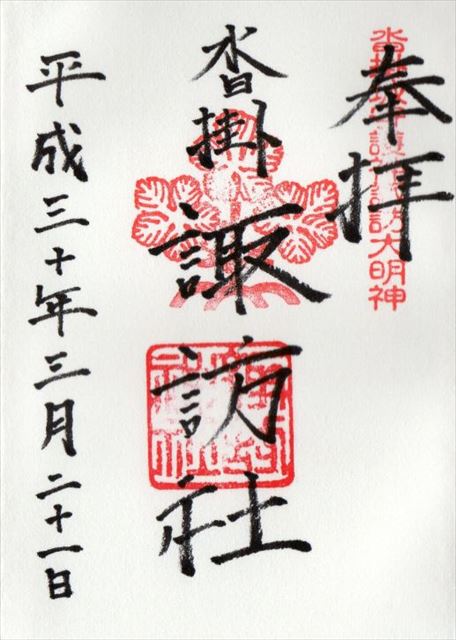 奉拝
諏訪大明神
沓掛諏訪社
平成三十年三月二十一日